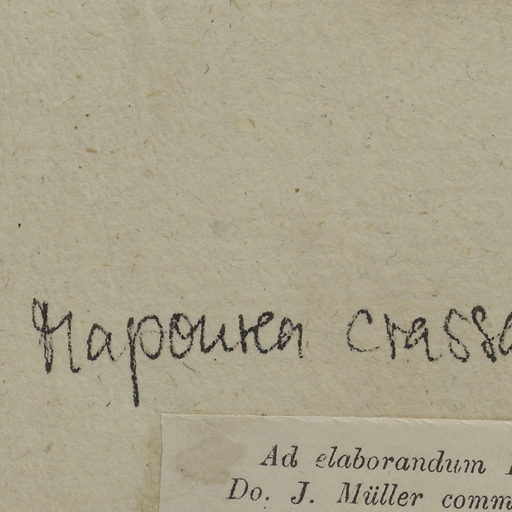 Mapourea crassa
Ad elaborandum
Do. J. Müller comm